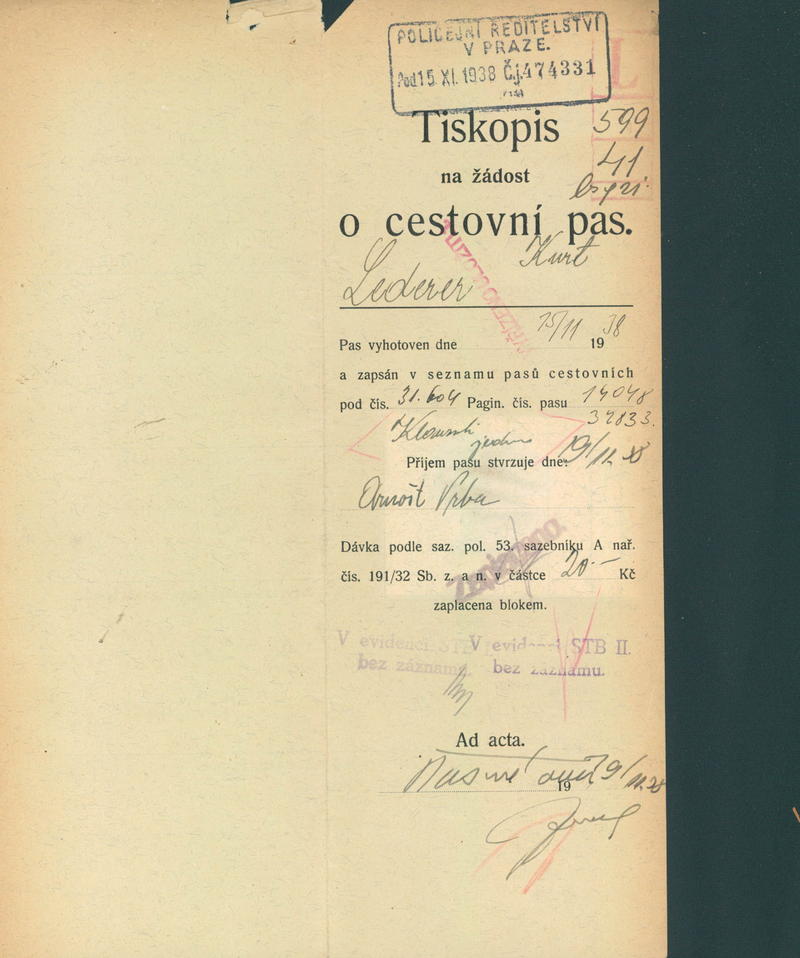 POLICEJNÍ ŘEDITELSTVÍ
V PRAZE.
Pod 15 XI. 1938 Č.j. 474331
L
Tiskopis
599
41
na žádost
o cestovní pas.
Kurt
Lederer
Pas vyhotoven dne 15/11 1938
a zapsán v seznamu pasů cestovních
pod čís. 31.604 Pagin. čís. pasu 14048
32833.
Příjem pasu stvrzuje dne: 19/11 38
Arnošt Vrba
Dávka podle saz. pol. 53. sazebníku A nař.
čís. 191/32 Sb. z. a n. v částce 20.— Kč
zaplacena blokem.
V evidenci STB V evidenci STB II.
bez záznamu. bez záznamu.
Ad acta.
19